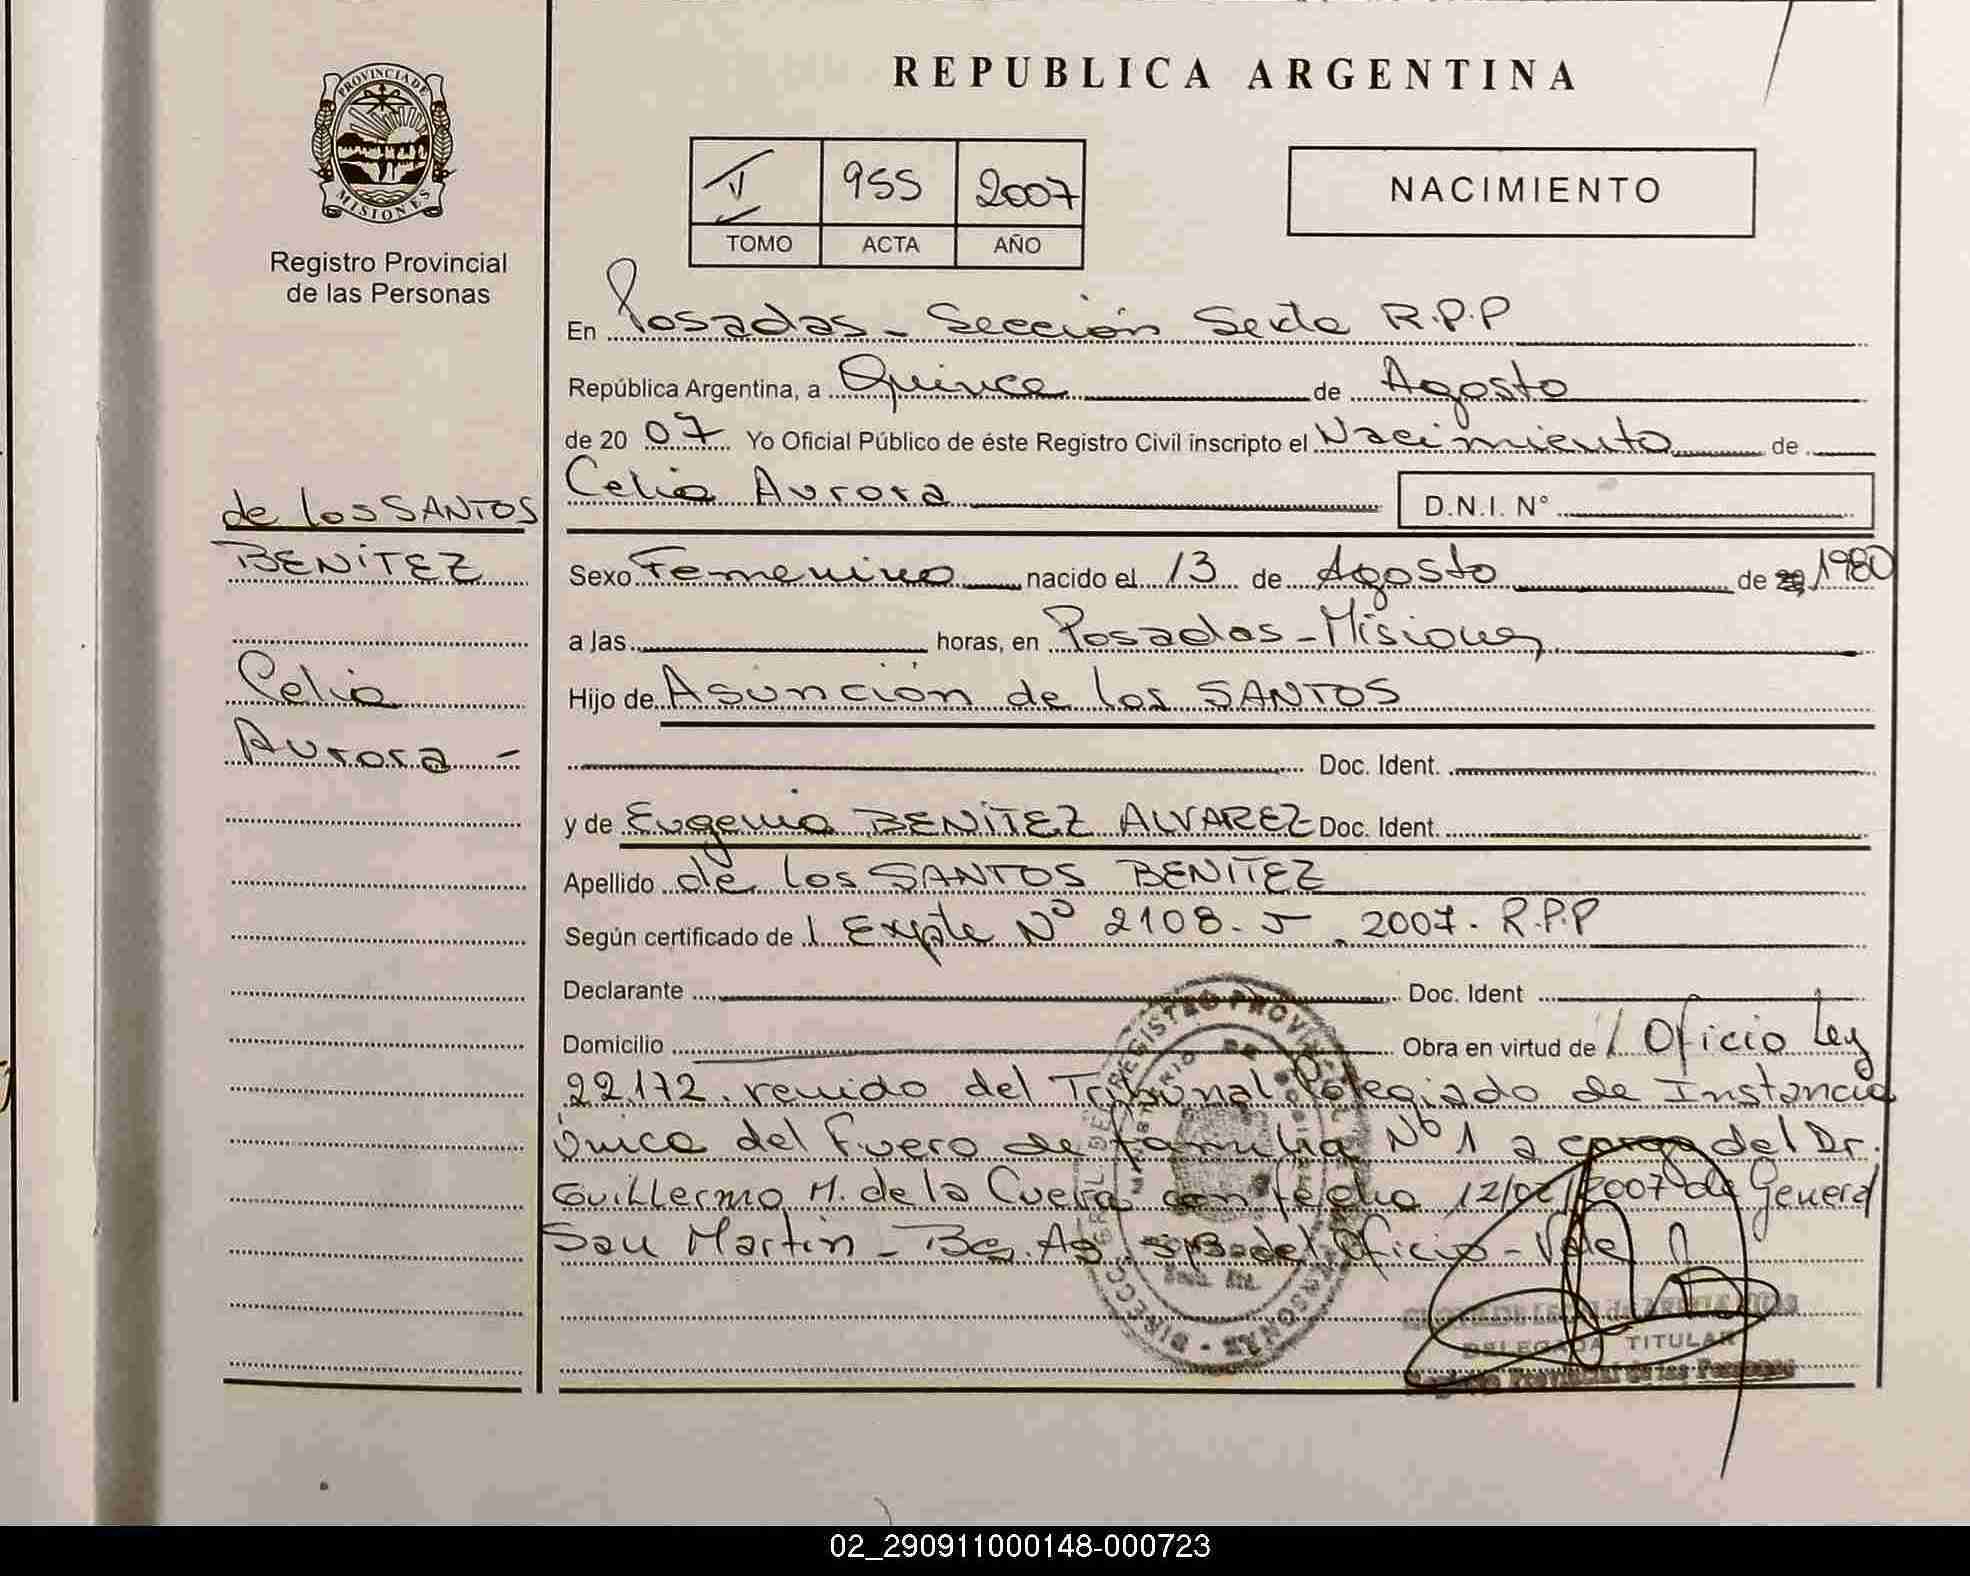 REPUBLICA ARGENTINA
PROVINCIA DE
MISIONES
Registro Provincial
de las Personas
955 2007
TOMO ACTA AÑO
NACIMIENTO
En Posadas - Sección Sexta R.P.P
República Argentina, a Quince de Agosto
de 20 07 Yo Oficial Público de éste Registro Civil inscripto el Nacimiento de
Celia Aurora D.N.I. N°
de los SANTOS
BENITEZ
Celia
Aurora -
Sexo Femenino nacido el 13 de Agosto de 1980
a las horas, en Posadas - Misiones
Hijo de Asunción de los SANTOS
Doc. Ident.
y de Eugenia BENITEZ ALVAREZ Doc. Ident.
Apellido de los SANTOS BENITEZ
Según certificado de / Expte Nº 2108. 2007. R.P.P
Declarante Doc. Ident
Domicilio Obra en virtud de / Oficio Ley
22.172. venido del Tribunal Colegiado de Instancia
Única del Fuero de Familia Nº 1 a cargo del Dr.
Guillermo M. de la Cueva con fecha 12/02/2007 de General
San Martin - Bs. As. del Oficio - Vale
DELEGADA TITULAR
Registro Provincial de las Personas
02_290911000148-000723